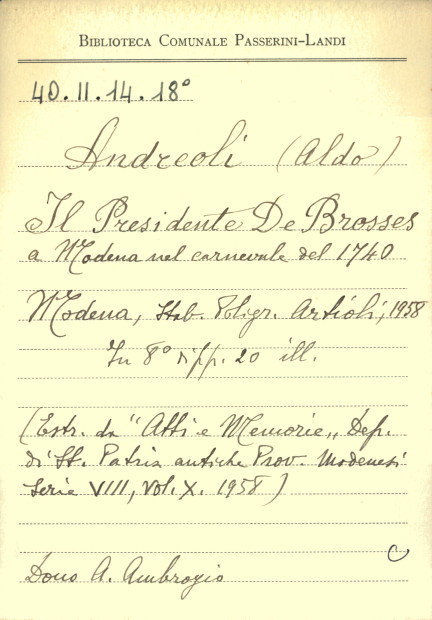 BIBLIOTECA COMUNALE PASSERINI-LANDI
40.II.14.18°
Andreoli (Aldo)
Il Presidente De Brosses
a Modena nel carnevale del 1740
Modena, Stab. Poligr. Artioli, 1958
In 8° di pp. 20 ill.
(Estr. da "Atti e Memorie„ Dep.
di St. Patria antiche Prov. Modenesi
Serie VIII, Vol. X. 1958)
C
Dono A. Ambrogio